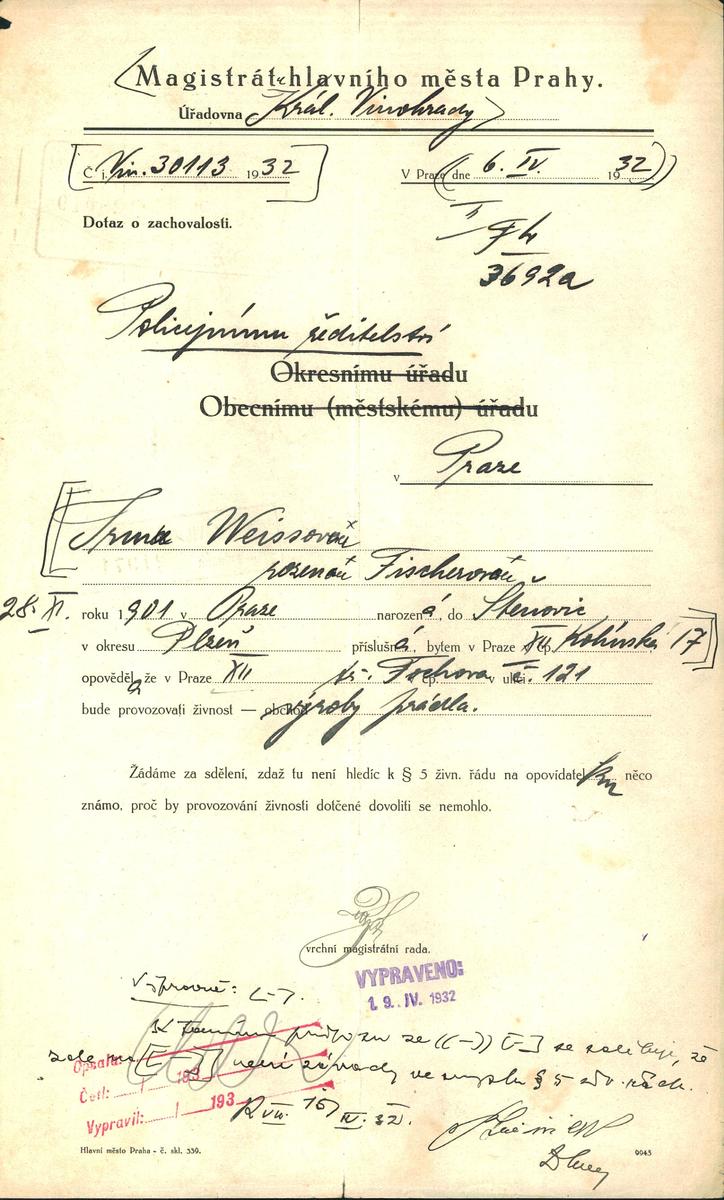 Magistrát hlavního města Prahy.
Úřadovna Král. Vinohrady
Č. j. Vin. 30113 1932
V Praze dne 6. IV. 1932
Dotaz o zachovalosti.
3692a
Policejnímu ředitelství
Okresnímu úřadu
Obecnímu (městskému) úřadu
v Praze
Irma Weissová
Fischerová
28. XI. roku 1901 v Praze narozená, do Štěnovic
v okresu Plzeň příslušná, bytem v Praze XII čp. Kolínská 17
opověděla, že v Praze XII tř. Fochova čp. v ulici č. 121
bude provozovati živnost — obchod výroby prádla.
Žádáme za sdělení, zdaž tu není hledíc k § 5 živn. řádu na opovídatelku něco
známo, proč by provozování živnosti dotčené dovoliti se nemohlo.
vrchní magistrátní rada.
VYPRAVENO:
19. IV. 1932
se sděluje, že
není závady ve smyslu § 5 živ. řádu.
Opsala:
Četl: 193
Vypravil: 193
IV. 32.
Hlavní město Praha - č. skl. 539.
0043